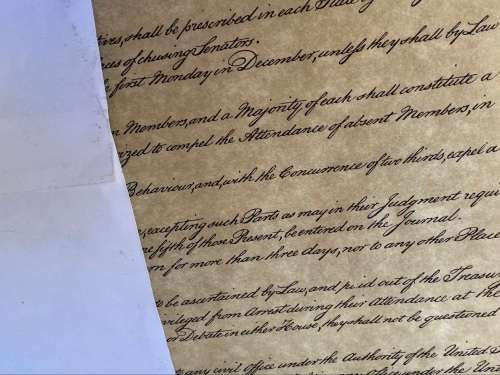 tives, shall be prescribed in each State
ces of chusing Senators.
first Monday in December, unless they shall by Law
Members, and a Majority of each shall constitute a
ized to compel the Attendance of absent Members, in
Behaviour, and, with the Concurrence of two thirds, expel a
excepting such Parts as may in their Judgment requi
ne fifth of those Present, be entered on the Journal.
n for more than three days, nor to any other Place
to be ascertained by Law, and paid out of the Treasu
vileged from Arrest during their Attendance at the
or Debate in either House, they shall not be questioned
any civil Office under the Authority of the United S
any Office under the Unit